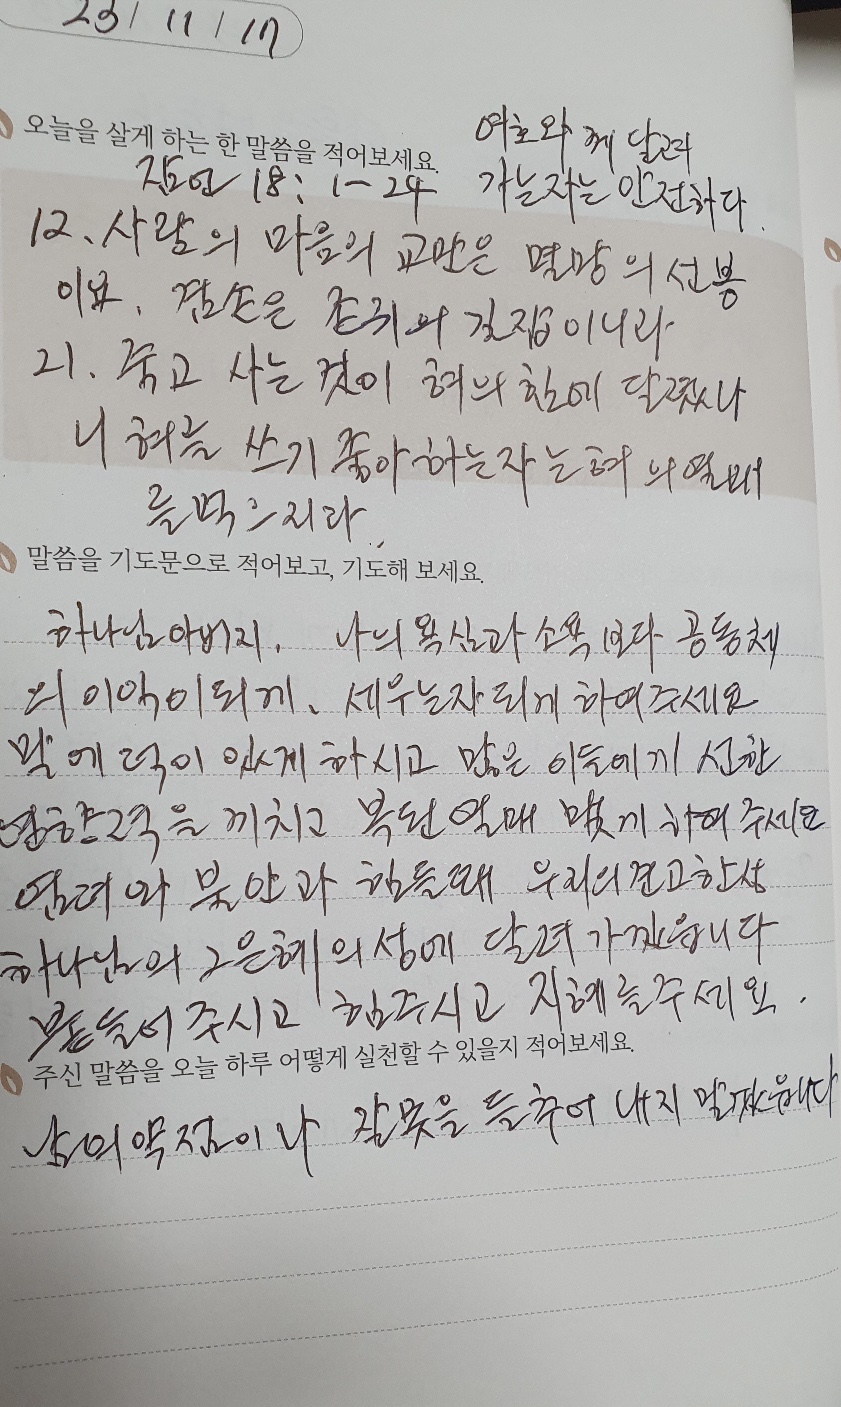 23/ 11 / 17
오늘을 살게 하는 한 말씀을 적어보세요.
여호와께 달려
잠언 18: 1-24
가는자는 안전하다.
12. 사람의 마음의 교만은 멸망의 선봉
이요, 겸손은 존귀의 길잡이니라
21. 죽고 사는 것이 혀의 힘에 달렸나
니 혀를 쓰기 좋아하는자는 혀의 열매
를 먹으리라.
말씀을 기도문으로 적어보고, 기도해 보세요.
하나님아버지. 나의 욕심과 소욕보다 공동체
의 이익이되게. 세우는자 되게 하여주세요
말에 덕이 있게 하시고 많은 이들에게 선한
영향력을 끼치고 복된 열매 맺게 하여 주세요
염려와 불안과 힘들때 우리의 견고한성
하나님의 그 은혜의 성에 달려가겠읍니다
붙들어 주시고 힘주시고 지혜를 주세요.
주신 말씀을 오늘 하루 어떻게 실천할 수 있을지 적어보세요.
남의 약점이나 잘못을 들추어 내지 말겠읍니다